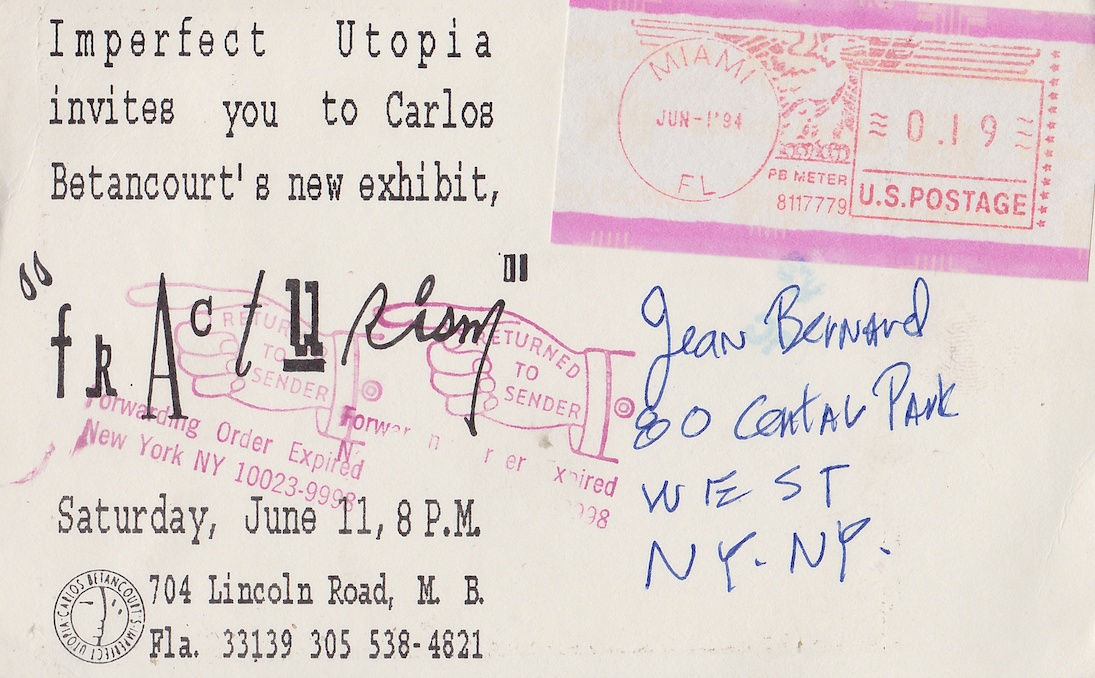 Imperfect Utopia
invites you to Carlos
Betancourt's new exhibit,
"fRActuRism"
Saturday, June 11, 8 P.M.
704 Lincoln Road, M. B.
Fla. 33139 305 538-4821
CARLOS BETANCOURT'S · IMPERFECT UTOPIA ·
MIAMI
JUN-1'94
FL
PB METER
8117779
0.19
U.S.POSTAGE
RETURNED
TO
SENDER
Forwarding Order Expired
New York NY 10023-9998
RETURNED
TO
SENDER
Jean Bernard
80 Central Park
WEST
NY. NY.